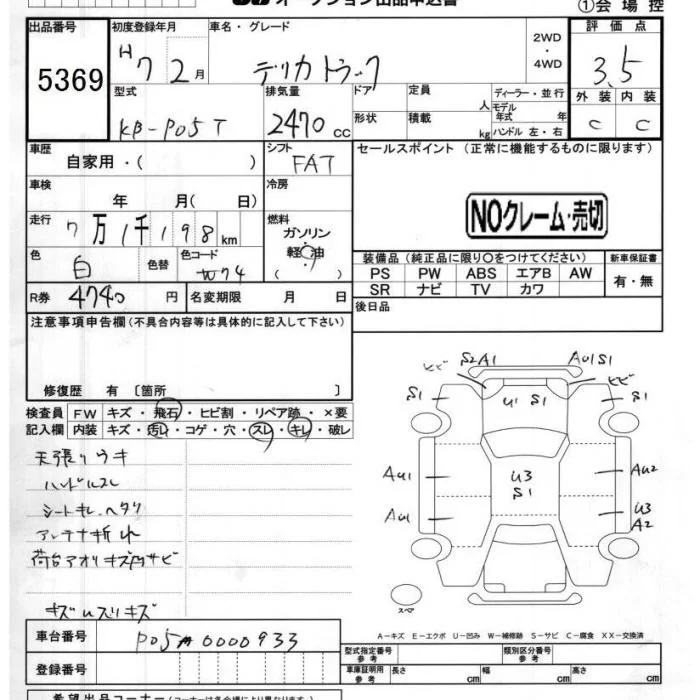 オークション出品申込書
①会場控
出品番号 初度登録年月 車名・グレード 2WD・4WD 評価点
5369 H7 2月 デリカトラック 3.5
型式 排気量 ドア 定員 人 ディーラー・並行 外装 内装
KB-P05T 2470cc 形状 積載 kg モデル年式 年 ハンドル 左・右 C C
車歴 シフト セールスポイント（正常に機能するものに限ります）
自家用・（ ） FAT
車検 冷房
年 月（ 日） NOクレーム・売切
走行 燃料
7万1千198km ガソリン
色 色替 色コード 軽油
白 W74 （ ）
装備品（純正品に限り○をつけてください） 新車保証書
PS PW ABS エアB AW 有・無
SR ナビ TV カワ
R券 4740円 名変期限 月 日 後日品
注意事項申告欄（不具合内容等は具体的に記入して下さい）
修復歴 有〔箇所 〕
検査員 FW キズ・飛石・ヒビ割・リペア跡・×要
記入欄 内装 キズ・汚レ・コゲ・穴・スレ・キレ・破レ
天張りウキ
ハンドルスレ
シートキレ・ヘタリ
アンテナ折れ
荷台アオリキズ凹サビ
キズUスリキズ
ヒビ S2A1 AU1S1 ヒビ
S1 U1 S1 S1
AU1 U3 S1 AU2
AU1 U3 A2
スペア
A－キズ E－エクボ U－凹み W－補修跡 S－サビ C－腐食 XX－交換済
車台番号 P05T-0000933
登録番号
型式指定番号 参考 類別区分番号 参考
車庫証明用 参考 長さ cm 幅 cm 高さ cm
希望出品コーナー（コーナーは各会場により異なります）